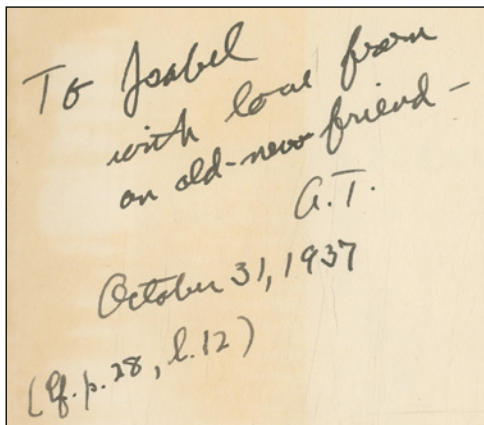 To Isabel
with love from
an old-new friend-
A.T.
October 31, 1937
(Cf. p. 28, l. 12)